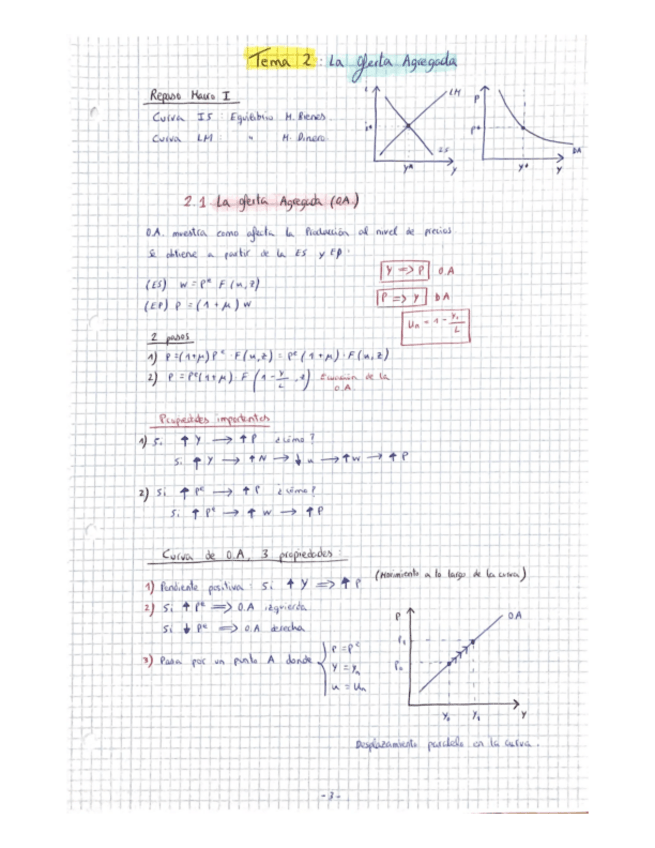 Tema 2: La Oferta Agregada
Repaso Macro I
Curva IS: Equilibrio M. Bienes
Curva LM: " M. Dinero
i
LM
i*
IS
Y*
Y
P
P*
DA
Y*
Y
2.1 La oferta Agregada (O.A.)
O.A. muestra como afecta la Producción al nivel de precios
Se obtiene a partir de la ES y EP.
(ES) W = Pe F(u,z)
(EP) P = (1+μ) W
Y => P O.A
P => Y DA
Un = 1 - Y/L
2 pasos
1) P=(1+μ) Pe · F(u,z) = Pe (1+μ) · F(u,z)
2) P = Pe(1+μ) · F(1 - Y/L, z) Ecuación de la O.A.
Propiedades importantes
1) Si ↑ Y → ↑ P ¿cómo?
Si ↑ Y → ↑ N → ↓ u → ↑ w → ↑ P
2) Si ↑ Pe → ↑ P ¿cómo?
Si ↑ Pe → ↑ w → ↑ P
Curva de O.A, 3 propiedades:
1) Pendiente positiva: Si ↑ Y => ↑ P (Movimiento a lo largo de la curva)
2) Si ↑ Pe => O.A izquierda
Si ↓ Pe => O.A derecha
3) Pasa por un punto A donde { P = Pe
Y = Yn
u = Un
P
O.A
Y
Desplazamiento paralelo en la curva.
-3-